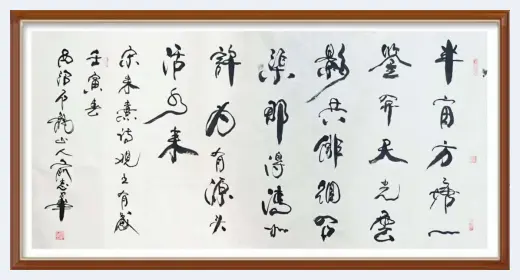 半亩方塘一
鉴开天光雲
影共徘徊问
渠那得清如
許为有源头
活水来
宋朱熹诗观书有感
壬寅春
山人俞志華